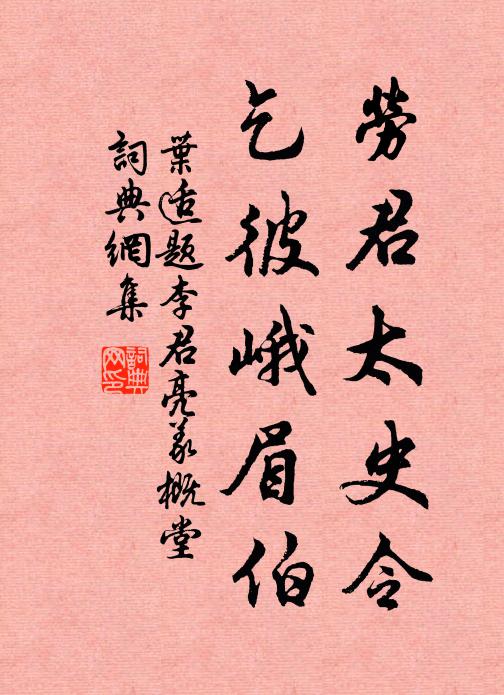 勞君太史令
乞彼峨眉伯
葉适題李君亮義概堂
詞典網集
詞典網印